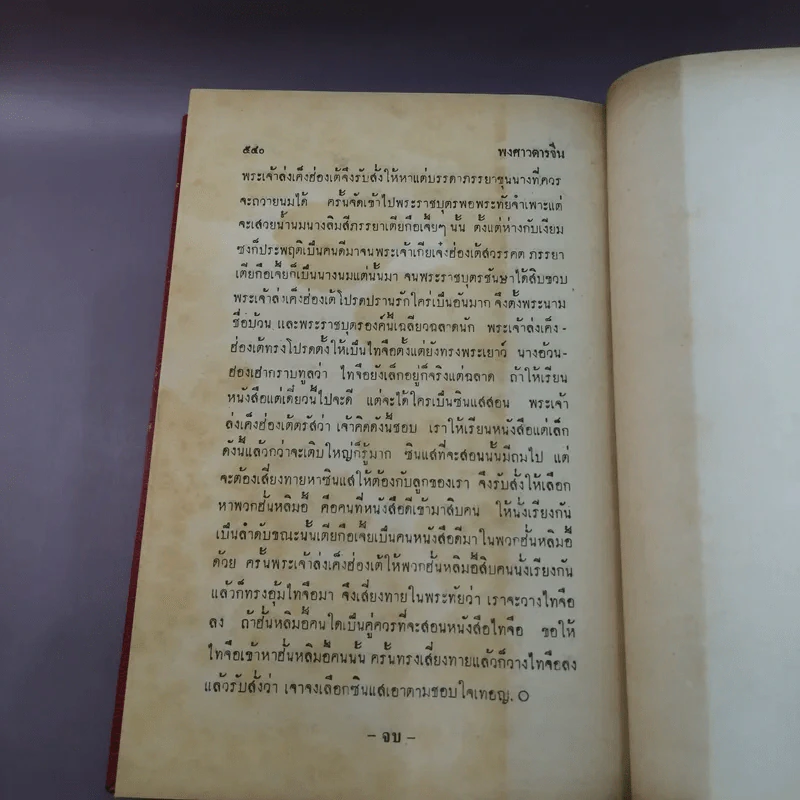 ๕๔๐ พงศาวดารจีน
พระเจ้าส่งเค็งฮ่องเต้จึงรับสั่งให้หาแต่บรรดาภรรยาขุนนางที่ควร
จะถวายนมได้ ครั้นจัดเข้าไปพระราชบุตรพอพระทัยจำเพาะแต่
จะเสวยน้ำนมนางลิมสีภรรยาเตียกือเจี๋ยๆ นั้น ตั้งแต่ห่างกับเงียม
ซงก็ประพฤติเป็นคนดีมาจนพระเจ้าเกียเจ๋งฮ่องเต้สวรรคต ภรรยา
เตียกือเจี๋ยก็เป็นนางนมแต่นั้นมา จนพระราชบุตรชันษาได้สิบขวบ
พระเจ้าส่งเค็งฮ่องเต้โปรดปรานรักใคร่เป็นอันมาก จึงตั้งพระนาม
ชื่อบ้วน และพระราชบุตรองค์นี้เฉลียวฉลาดนัก พระเจ้าส่งเค็ง-
ฮ่องเต้ทรงโปรดตั้งให้เป็นไทจือตั้งแต่ยังทรงพระเยาว์ นางอ้วน-
ฮ่องเฮากราบทูลว่า ไทจือยังเล็กอยู่ก็จริงแต่ฉลาด ถ้าให้เรียน
หนังสือแต่เดี๋ยวนี้ไปจะดี แต่จะได้ใครเป็นซินแสสอน พระเจ้า
ส่งเค็งฮ่องเต้ตรัสว่า เจ้าคิดดังนี้ชอบ เราให้เรียนหนังสือแต่เล็ก
ดังนี้แล้วกว่าจะเติบใหญ่ก็รู้มาก ซินแสที่จะสอนนั้นมีถมไป แต่
จะต้องเสี่ยงทายหาซินแสให้ต้องกับลูกของเรา จึงรับสั่งให้เลือก
หาพวกฮั่นหลิมอี้ คือคนที่หนังสือดีเข้ามาสิบคน ให้นั่งเรียงกัน
เป็นลำดับขณะนั้นเตียกือเจี๋ยเป็นคนหนังสือดีมาในพวกฮั่นหลิมอี้
ด้วย ครั้นพระเจ้าส่งเค็งฮ่องเต้ให้พวกฮั่นหลิมอี้สิบคนนั่งเรียงกัน
แล้วก็ทรงอุ้มไทจือมา จึงเสี่ยงทายในพระทัยว่า เราจะวางไทจือ
ลง ถ้าฮั่นหลิมอี้คนใดเป็นคู่ควรที่จะสอนหนังสือไทจือ ขอให้
ไทจือเข้าหาฮั่นหลิมอี้คนนั้น ครั้นทรงเสี่ยงทายแล้วก็วางไทจือลง
แล้วรับสั่งว่า เจ้าจงเลือกซินแสเอาตามชอบใจเทอญ. ๐
– จบ –